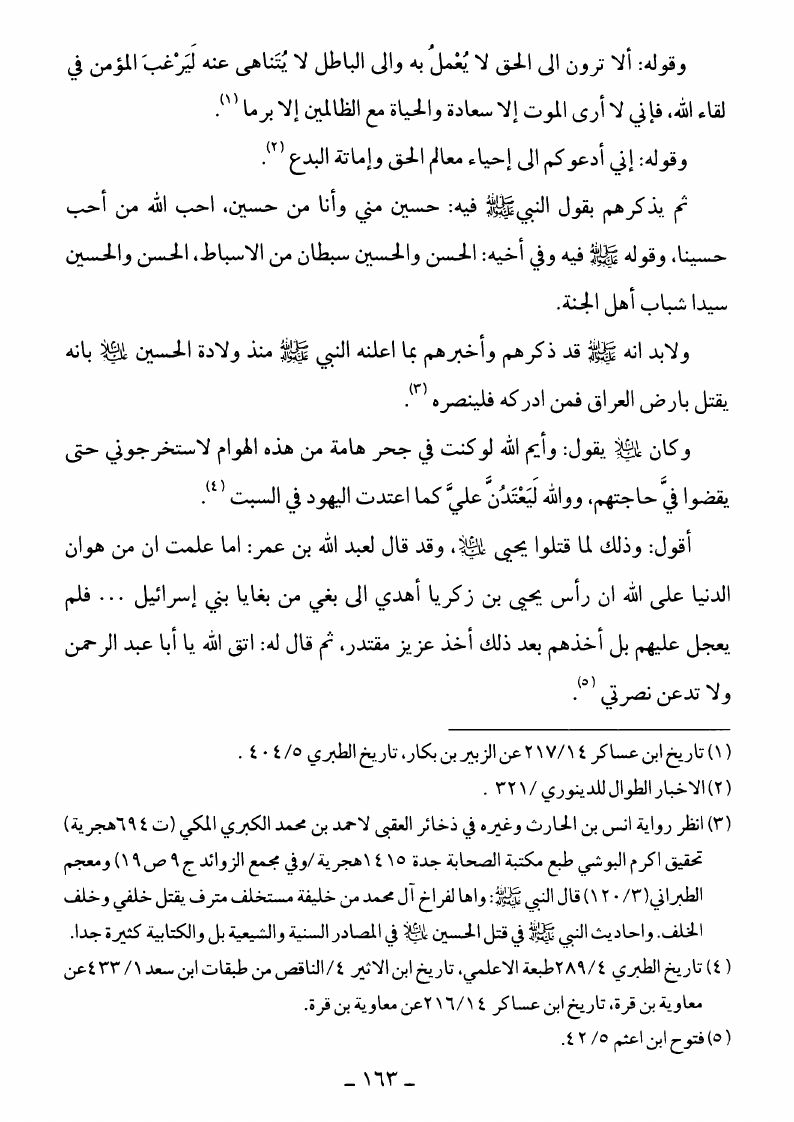 وقوله: ألا ترون الى الحق لا يُعْملُ به والى الباطل لا يُتَناهى عنه لَيَرْغبَ المؤمن في
لقاء الله، فإني لا أرى الموت إلا سعادة والحياة مع الظالمين إلا برما (١).
وقوله: إني أدعوكم الى إحياء معالم الحق وإماتة البدع (٢).
ثم يذكرهم بقول النبي ﷺ فيه: حسين مني وأنا من حسين، احب الله من أحب
حسينا، وقوله ﷺ فيه وفي أخيه: الحسن والحسين سبطان من الاسباط، الحسن والحسين
سيدا شباب أهل الجنة.
ولابد انه ﷺ قد ذكرهم وأخبرهم بما اعلنه النبي ﷺ منذ ولادة الحسين عليه السلام بانه
يقتل بارض العراق فمن ادركه فلينصره (٣).
وكان عليه السلام يقول: وأيم الله لو كنت في جحر هامة من هذه الهوام لاستخرجوني حتى
يقضوا فيَّ حاجتهم، ووالله لَيَعْتَدُنَّ عليَّ كما اعتدت اليهود في السبت (٤).
أقول: وذلك لما قتلوا يحيى عليه السلام، وقد قال لعبد الله بن عمر: اما علمت ان من هوان
الدنيا على الله ان رأس يحيى بن زكريا أهدي الى بغي من بغايا بني إسرائيل ... فلم
يعجل عليهم بل أخذهم بعد ذلك أخذ عزيز مقتدر، ثم قال له: اتق الله يا أبا عبد الرحمن
ولا تدعن نصرتي (٥).
(١) تاريخ ابن عساكر ٢١٧/١٤ عن الزبير بن بكار، تاريخ الطبري ٤٠٤/٥ .
(٢) الاخبار الطوال للدينوري /٣٢١ .
(٣) انظر رواية انس بن الحارث وغيره في ذخائر العقبى لاحمد بن محمد الكبري المكي (ت ٦٩٤هجرية)
تحقيق اكرم البوشي طبع مكتبة الصحابة جدة ١٤١٥هجرية /وفي مجمع الزوائد ج٩ ص١٩) ومعجم
الطبراني(١٢٠/٣) قال النبي ﷺ: واها لفراخ آل محمد من خليفة مستخلف مترف يقتل خلفي وخلف
الخلف. واحاديث النبي ﷺ في قتل الحسين عليه السلام في المصادر السنية والشيعية بل والكتابية كثيرة جدا.
(٤) تاريخ الطبري ٢٨٩/٤طبعة الاعلمي، تاريخ ابن الاثير ٤/الناقص من طبقات ابن سعد ٤٣٣/١عن
معاوية بن قرة، تاريخ ابن عساكر ٢١٦/١٤عن معاوية بن قرة.
(٥) فتوح ابن اعثم ٤٢/٥.
ـ ١٦٣ ـ